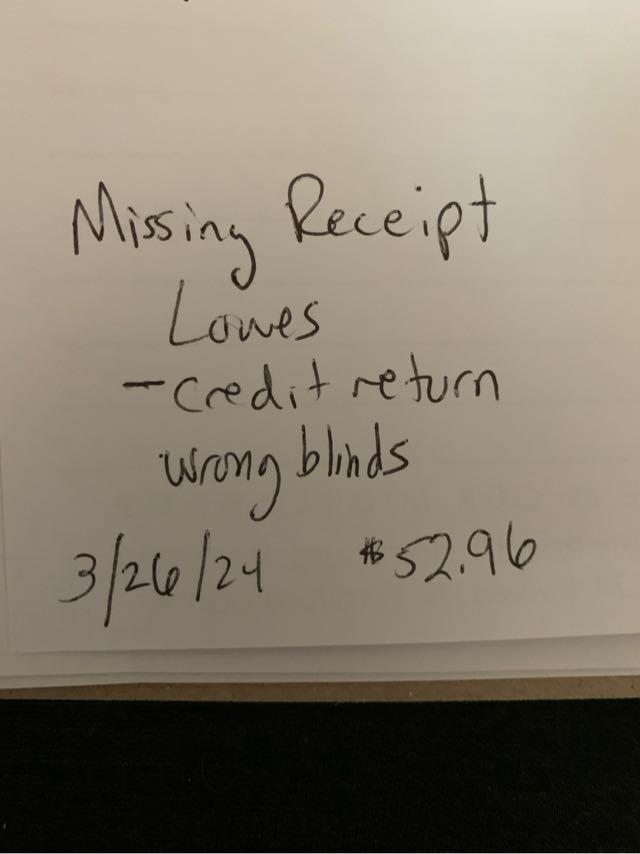 Missing Receipt
Lowes
- credit return
wrong blinds
3/26/24 $52.96